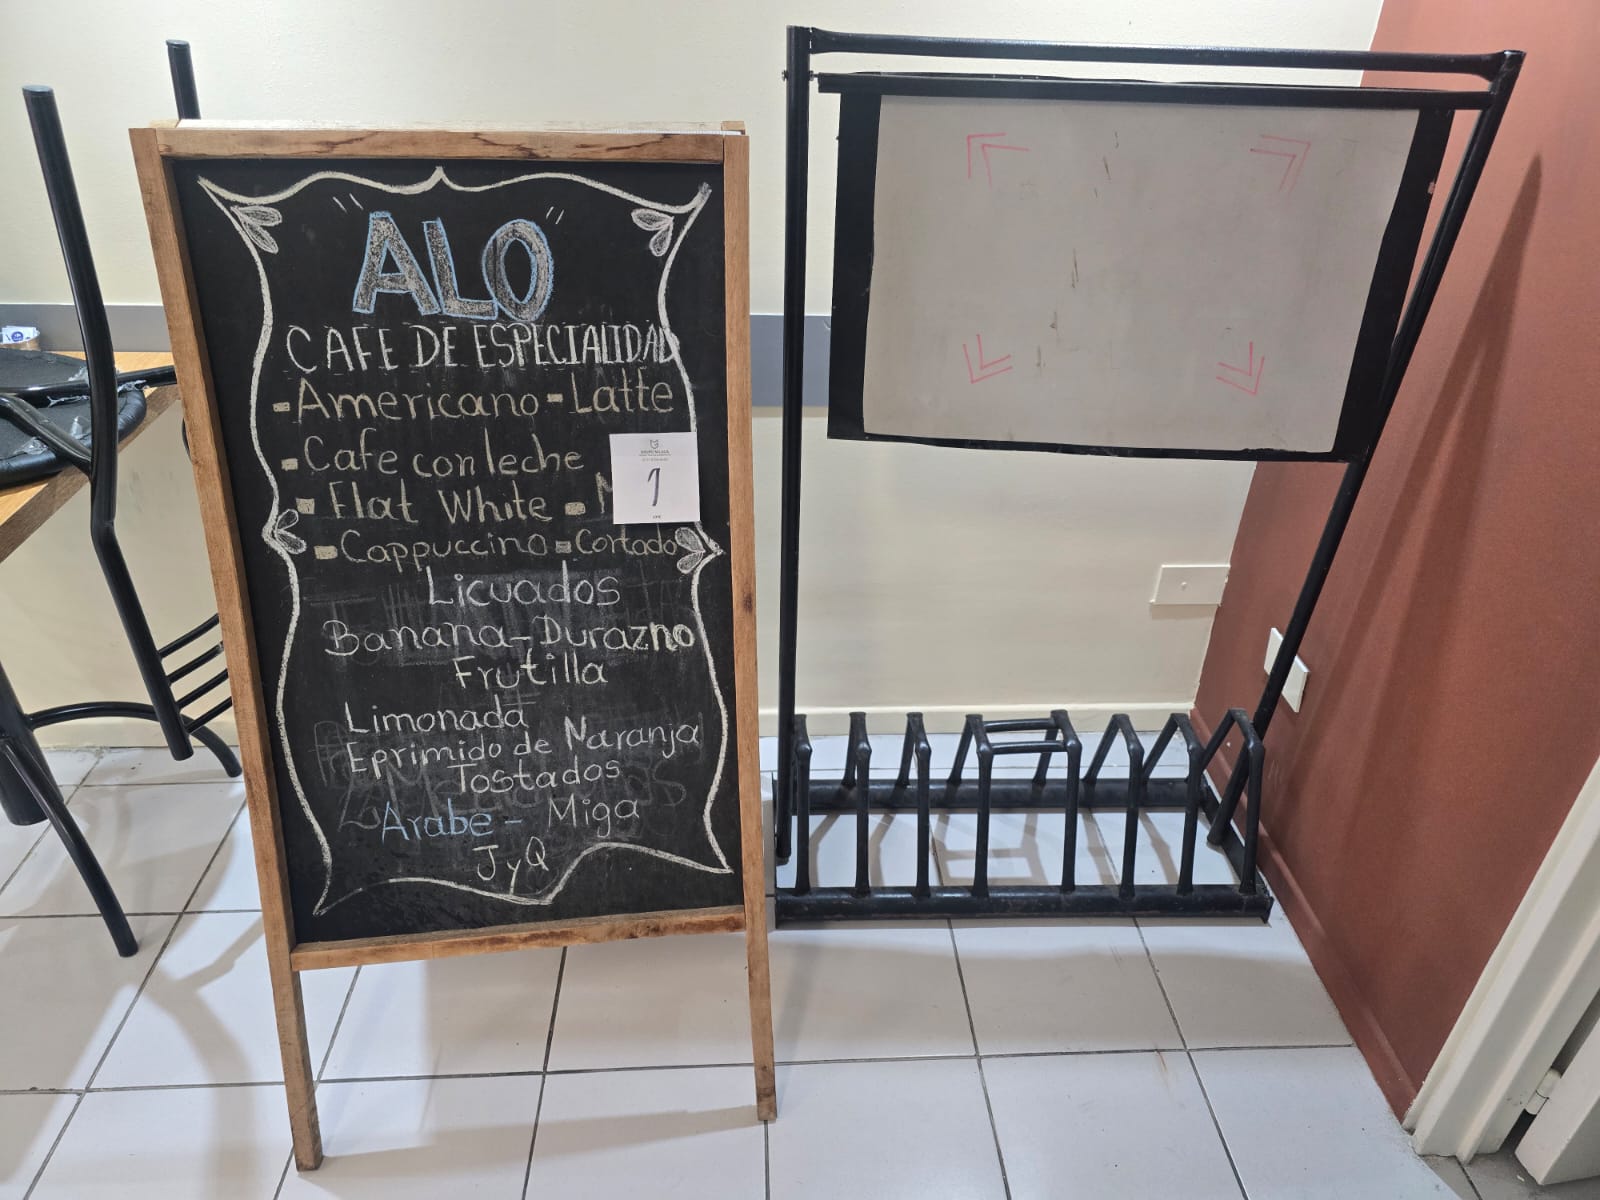 "ALO"
CAFE DE ESPECIALIDAD
-Americano-Latte
-Cafe con leche
-Flat White -
-Cappuccino-Cortado
Licuados
Banana-Durazno
Frutilla
Limonada
Eprimido de Naranja
Tostados
Arabe- Miga
JyQ
1